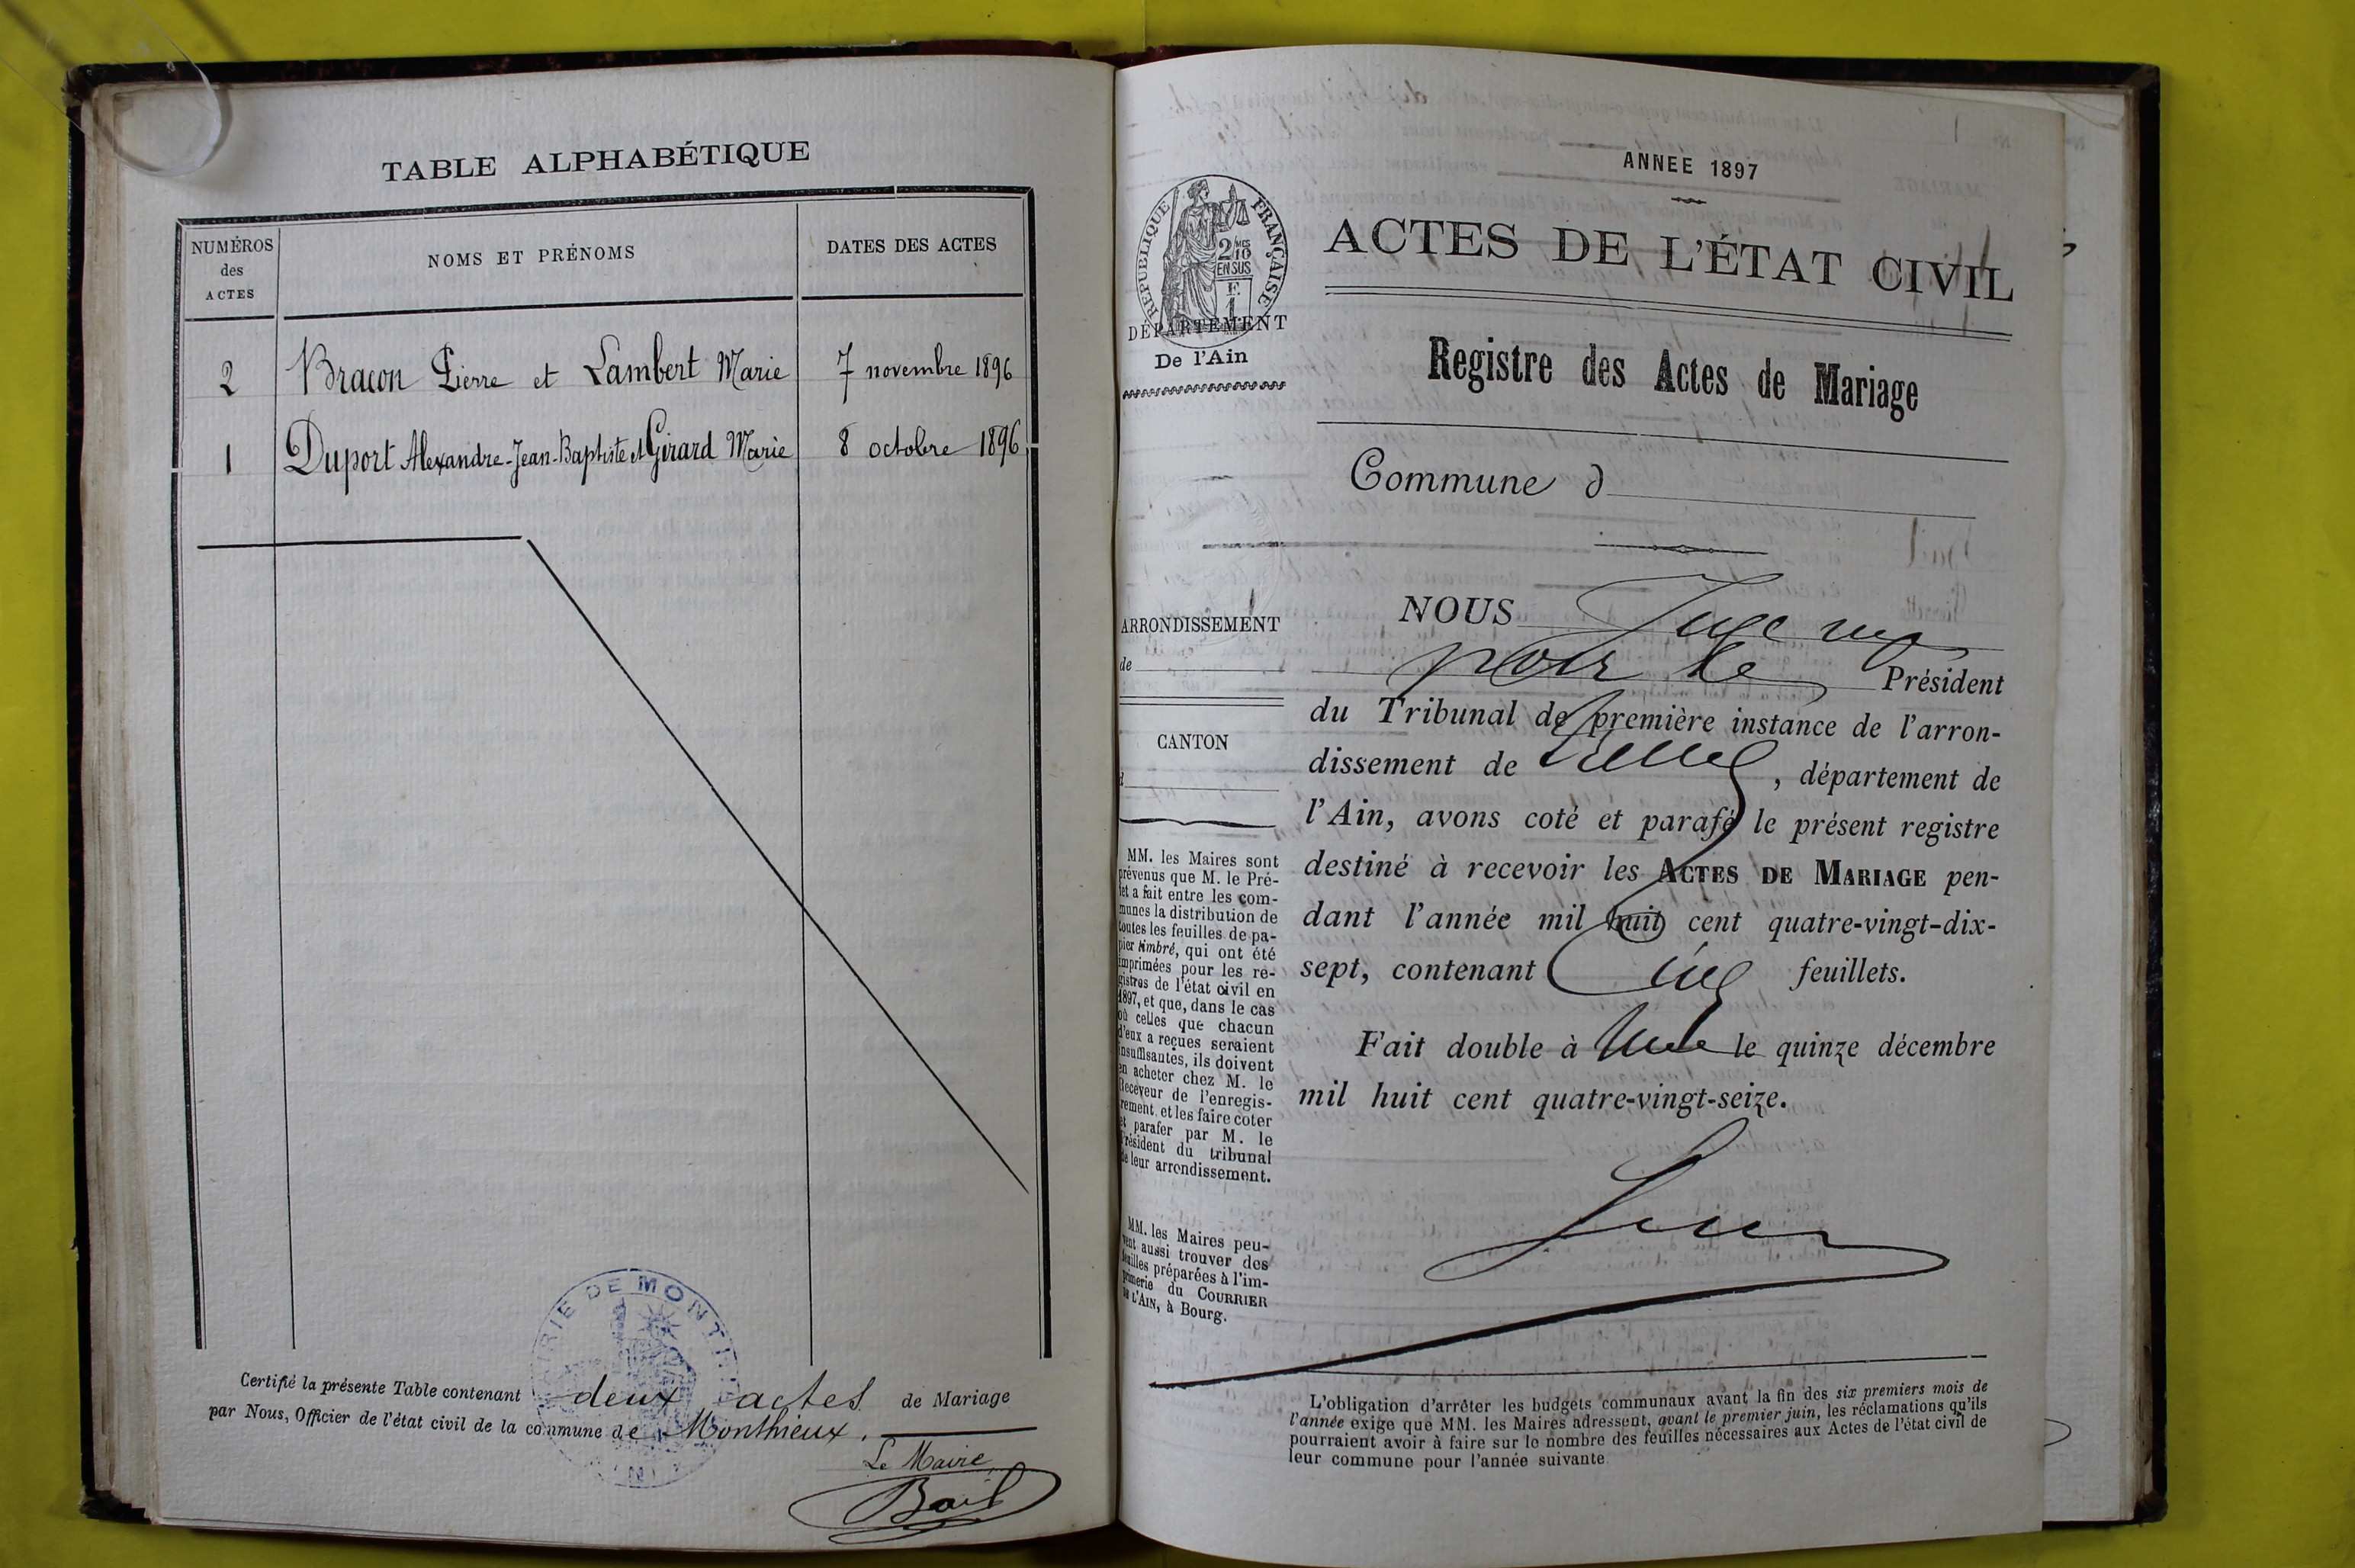 TABLE ALPHABÉTIQUE
NUMÉROS
des
ACTES
NOMS ET PRÉNOMS
DATES DES ACTES
2 Bracon Pierre et Lambert Marie 7 novembre 1896
1 Duport Alexandre-Jean-Baptiste et Girard Marie 8 octobre 1896
MAIRIE DE MONT
Certifié la présente Table contenant deux actes de Mariage
par Nous, Officier de l'état civil de la commune de Monthieux.
Le Maire
Bail
ANNEE 1897
RÉPUBLIQUE FRANÇAISE
2/10 MES
EN SUS
F.
1
DÉPARTEMENT
De l'Ain
ACTES DE L'ÉTAT CIVIL
Registre des Actes de Mariage
Commune d
ARRONDISSEMENT
de
CANTON
d
MM. les Maires sont
prévenus que M. le Pré-
fet a fait entre les com-
munes la distribution de
toutes les feuilles de pa-
pier timbré, qui ont été
imprimées pour les re-
gistres de l'état civil en
1897, et que, dans le cas
où celles que chacun
d'eux a reçues seraient
insuffisantes, ils doivent
en acheter chez M. le
Receveur de l'enregis-
rement, et les faire coter
et parafer par M. le
Président du tribunal
de leur arrondissement.
MM. les Maires peu-
vent aussi trouver des
feuilles préparées à l'im-
primerie du COURRIER
DE L'AIN, à Bourg.
NOUS Juge
pour le Président
du Tribunal de première instance de l'arron-
dissement de , département de
l'Ain, avons coté et parafé le présent registre
destiné à recevoir les ACTES DE MARIAGE pen-
dant l'année mil huit cent quatre-vingt-dix-
sept, contenant Cinq feuillets.
Fait double à le quinze décembre
mil huit cent quatre-vingt-seize.
L'obligation d'arrêter les budgets communaux avant la fin des six premiers mois de
l'année exige que MM. les Maires adressent, avant le premier juin, les réclamations qu'ils
pourraient avoir à faire sur le nombre des feuilles nécessaires aux Actes de l'état civil de
leur commune pour l'année suivante